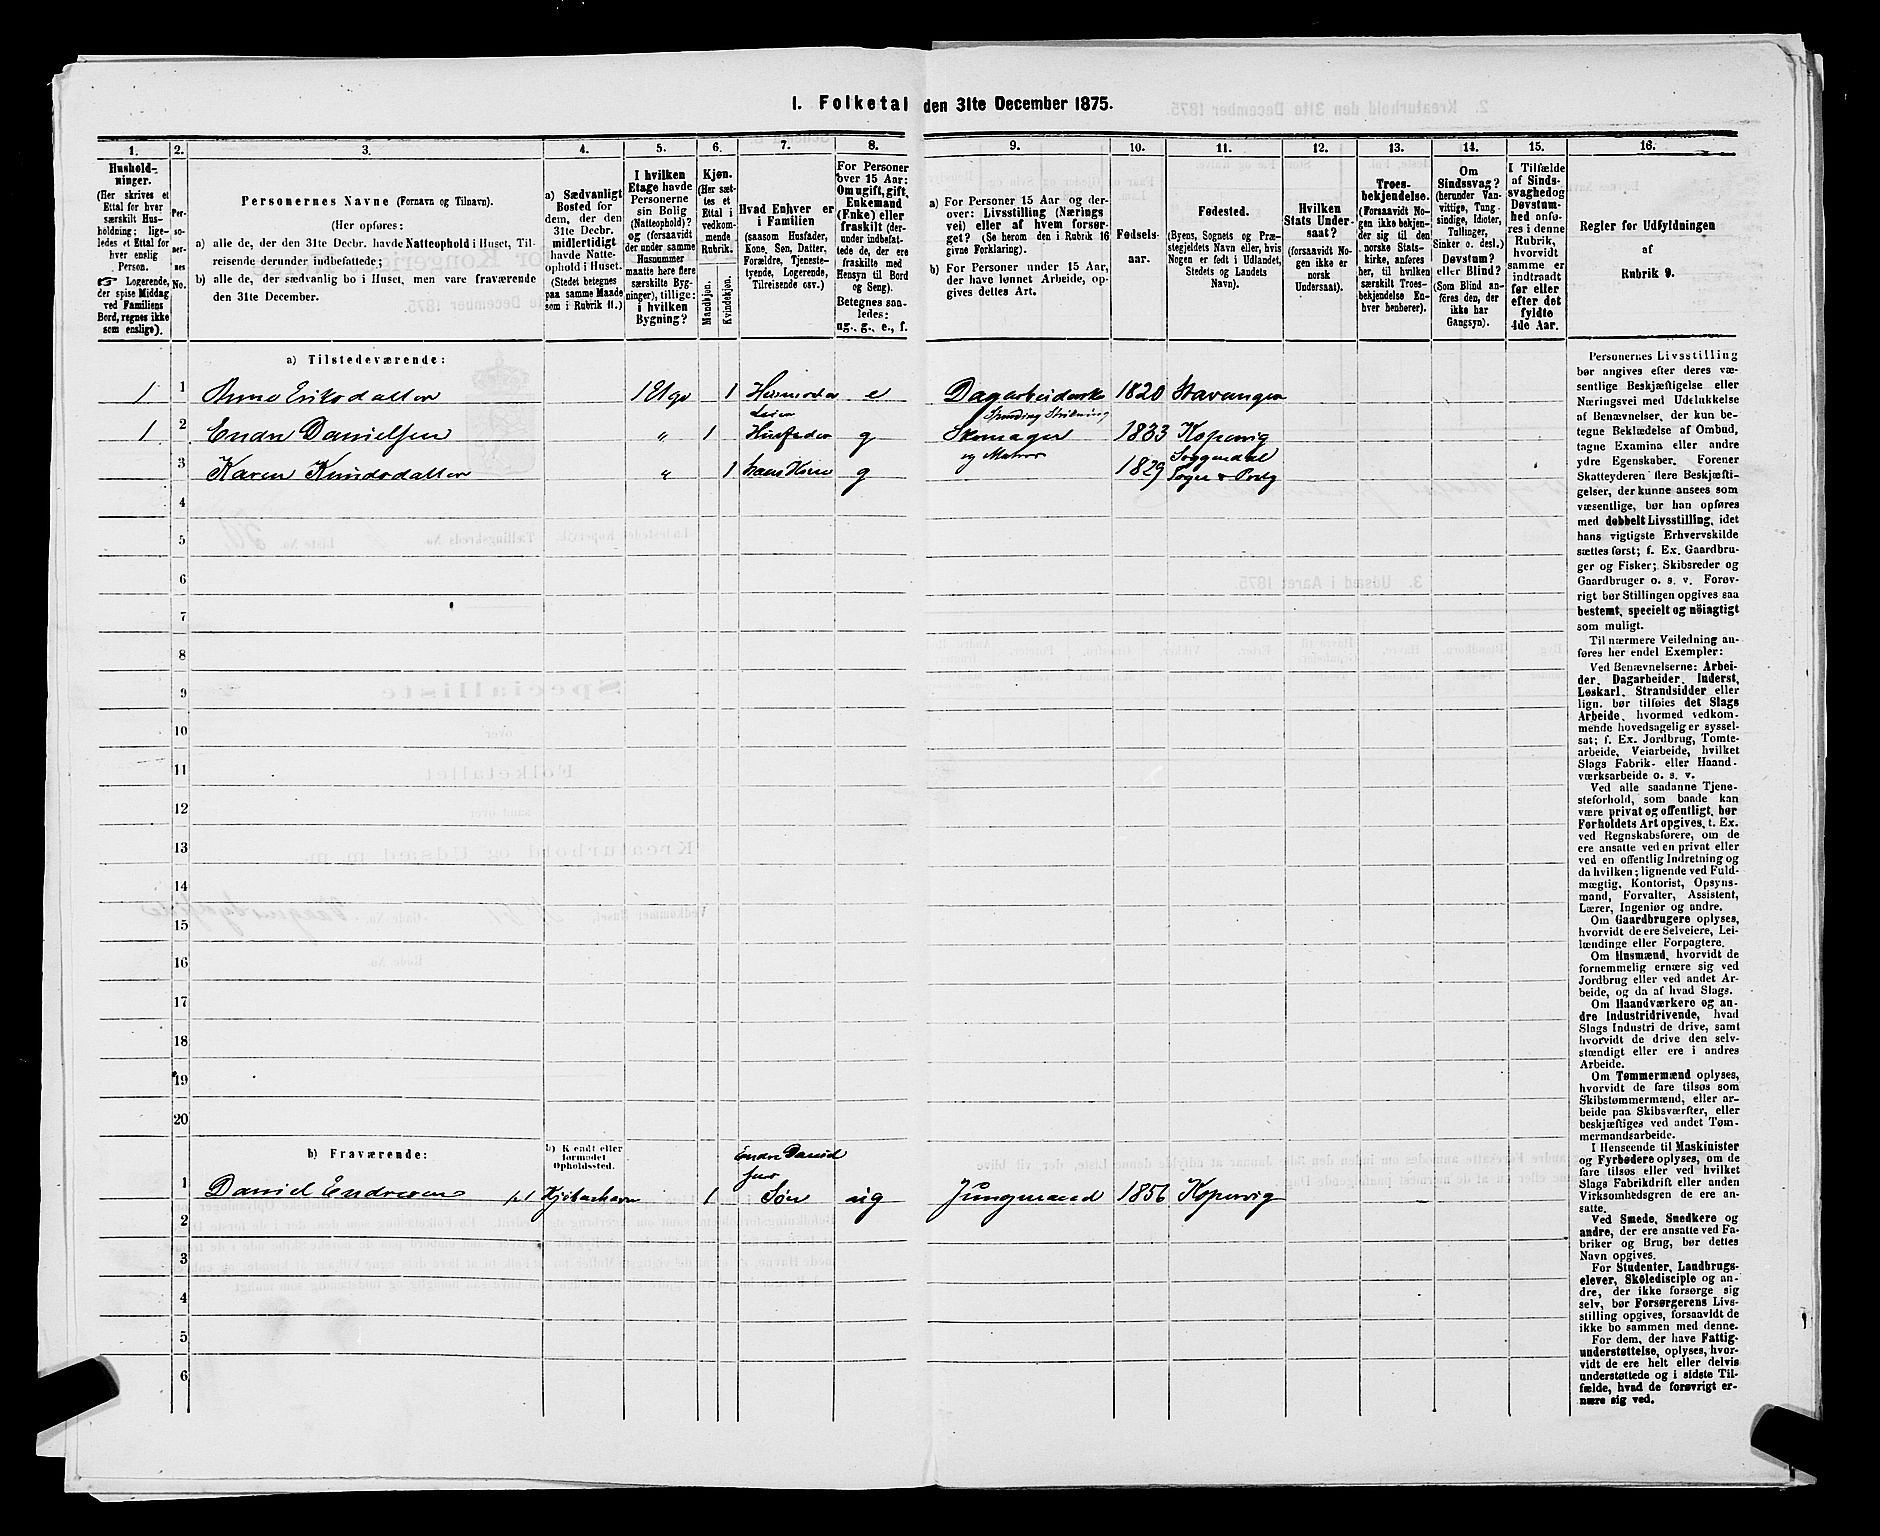 1. Folketal den 31te December 1875.
1.
Hushold-
ninger.
(Her skrives et
Ettal for hver
særskilt Hus-
holdning; lige-
ledes et Ettal for
hver enslig
Person.
☞ Logerende,
der spise Middag
ved Familiens
Bord, regnes ikke
som enslige).
2.
Per-
so-
ner-
nes
No.
3.
Personernes Navne (Fornavn og Tilnavn).
(Her opføres:
a) alle de, der den 31te Decbr. havde Natteophold i Huset, Til-
reisende derunder indbefattede;
b) alle de, der sædvanlig bo i Huset, men vare fraværende
den 31te December.
4.
a) Sædvanligt
Bosted for
dem, der den
31te Decbr.
midlertidigt
havde Natte-
ophold i Huset.
(Stedet betegnes
paa samme Maade
som i Rubrik 11.)
5.
I hvilken
Etage havde
Personerne
sin Bolig
(Natteophold)?
og (forsaavidt
der under samme
Husnummer
maatte høre flere
særskilte Byg-
ninger), tillige:
i hvilken
Bygning?
6.
Kjøn.
(Her sæt-
tes et
Ettal i
vedkom-
mende
Rubrik.
Mandkjøn.
Kvindekjøn.
7.
Hvad Enhver er
i Familien
(saasom Husfader,
Kone, Søn, Datter,
Forældre, Tjeneste-
tyende, Logerende,
Tilreisende osv.)
8.
For Personer
over 15 Aar:
Om ugift, gift,
Enkemand
(Enke) eller
fraskilt (der-
under indbefat-
tede de, der ere
fraskilte med
Hensyn til Bord
og Seng).
Betegnes saa-
ledes:
ug., g., e., f.
9.
a) For Personer 15 Aar og der-
over: Livsstilling (Nærings
vei) eller af hvem forsør-
get? (Se herom den i Rubrik 16
givne Forklaring).
b) For Personer under 15 Aar,
der have lønnet Arbeide, op-
gives dettes Art.
10.
Fødsels-
aar.
11.
Fødested.
(Byens, Sognets og Præ-
stegjeldets Navn eller, hvis
Nogen er født i Udlandet,
Stedets og Landets
Navn).
12.
Hvilken
Stats Under-
saat?
(forsaavidt No-
gen ikke er
norsk
Undersaat).
13.
Troes-
bekjendelse.
(Forsaavidt No-
gen ikke bekjen-
der sig til den
norske Stats-
kirke, anføres
her, til hvilken
særskilt Troes-
bekjendelse En-
hver henhører).
14.
Om
Sindssvag?
(herunder Van-
vittige, Tung-
sindige, Idioter,
Tullinger,
Sinker o. desl.)
Døvstum?
eller Blind?
(Som Blind an-
føres den, der
ikke har
Gangsyn).
15.
I Tilfælde
af Sinds-
svaghed og
Døvstum-
hed anfø-
res i denne
Rubrik,
hvorvidt
samme er
indtraadt
før eller
efter det
fyldte
4de Aar.
16.
Regler for Udfyldningen
af
Rubrik 9.
a) Tilstedeværende:
1 1 Anne Eriksdatter 1 Etge 1 Husmoder e Dagarbeiderske 1820 Stavanger
1 2 Endre Danielsen " 1 Husfader g Skomager 1833 Kopervig
og Matros
3 Karen Knudsdatter " 1 hans Kone g 1829 Soggendal
Sogn & Prstg
4
5
6
7
8
9
10
11
12
13
14
15
16
17
18
19
20
b) Fraværende:
b) Kjendt eller
formodet
Opholdssted.
Endre Daniel
sens
1 Daniel Endresen Kjøbenhavn 1 Søn ug Jungmand 1856 Kopervig
2
3
4
5
6
Personernes Livsstilling
bør angives efter deres væ-
sentlige Beskjæftigelse eller
Næringsvei med Udelukkelse
af Benævnelser, der kun be-
tegne Beklædelse af Ombud,
tagne Examina eller andre
ydre Egenskaber. Forener
Skatteyderen flere Beskjæfti-
gelser, der kunne ansees som
væsentlige, bør han opføres
med dobbelt Livsstilling, idet
hans vigtigste Erhvervskilde
sættes først; f. Ex. Gaardbru-
ger og Fisker; Skibsreder og
Gaardbruger o. s. v. Forøv-
rigt bør Stillingen opgives saa
bestemt, specielt og nöiagtigt
som muligt.
Til nærmere Veiledning an-
føres her endel Exempler:
Ved Benævnelserne: Arbei-
der, Dagarbeider, Inderst,
Løskarl, Strandsidder eller
lign. bør tilføies det Slags
Arbeide, hvormed vedkom-
mende hovedsagelig er syssel-
sat; f. Ex. Jordbrug, Tomte-
arbeide, Veiarbeide, hvilket
Slags Fabrik- eller Haand-
værksarbeide o. s. v.
Ved alle saadanne Tjene-
steforhold, som baade kan
være privat og offentligt, bør
Forholdets Art opgives, t. Ex.
ved Regnskabsførere, om de
ere ansatte ved en privat eller
ved en offentlig Indretning og
da hvilken; lignende ved Fuld-
mægtig, Kontorist, Opsyns-
mand, Forvalter, Assistent,
Lærer, Ingeniør og andre.
Om Gaardbrugere oplyses,
hvorvidt de ere Selveiere, Lei-
lændinge eller Forpagtere.
Om Husmænd, hvorvidt de
fornemmelig ernære sig ved
Jordbrug eller ved andet Ar-
beide, og da af hvad Slags.
Om Haandværkere og an-
dre Industridrivende, hvad
Slags Industri de drive, samt
hvorvidt de drive den selv-
stændigt eller ere i andres
Arbeide.
Om Tømmermænd oplyses,
hvorvidt de fare tilsøs som
Skibstømmermænd, eller ar-
beide paa Skibsværfter, eller
beskjæftiges ved andet Tøm-
mermandsarbeide.
I Henseende til Maskinister
og Fyrbødere oplyses, om de
fare tilsøs eller ved hvilket
Slags Fabrikdrift eller anden
Virksomhedsgren de ere an-
satte.
Ved Smede, Snedkere og
andre, der ere ansatte ved Fa-
briker og Brug, bør dettes
Navn opgives.
For Studenter, Landbrugs-
elever, Skoledisciple og an-
dre, der ikke forsørge sig
selv, bør Forsørgerens Livs-
stilling opgives, forsaavidt de
ikke bo sammen med denne.
For dem, der have Fattig-
understøttelse, oplyses, hvor-
vidt de ere helt eller delvis
understøttede og i sidste Til-
fælde, hvad de forøvrigt er-
nære sig ved.